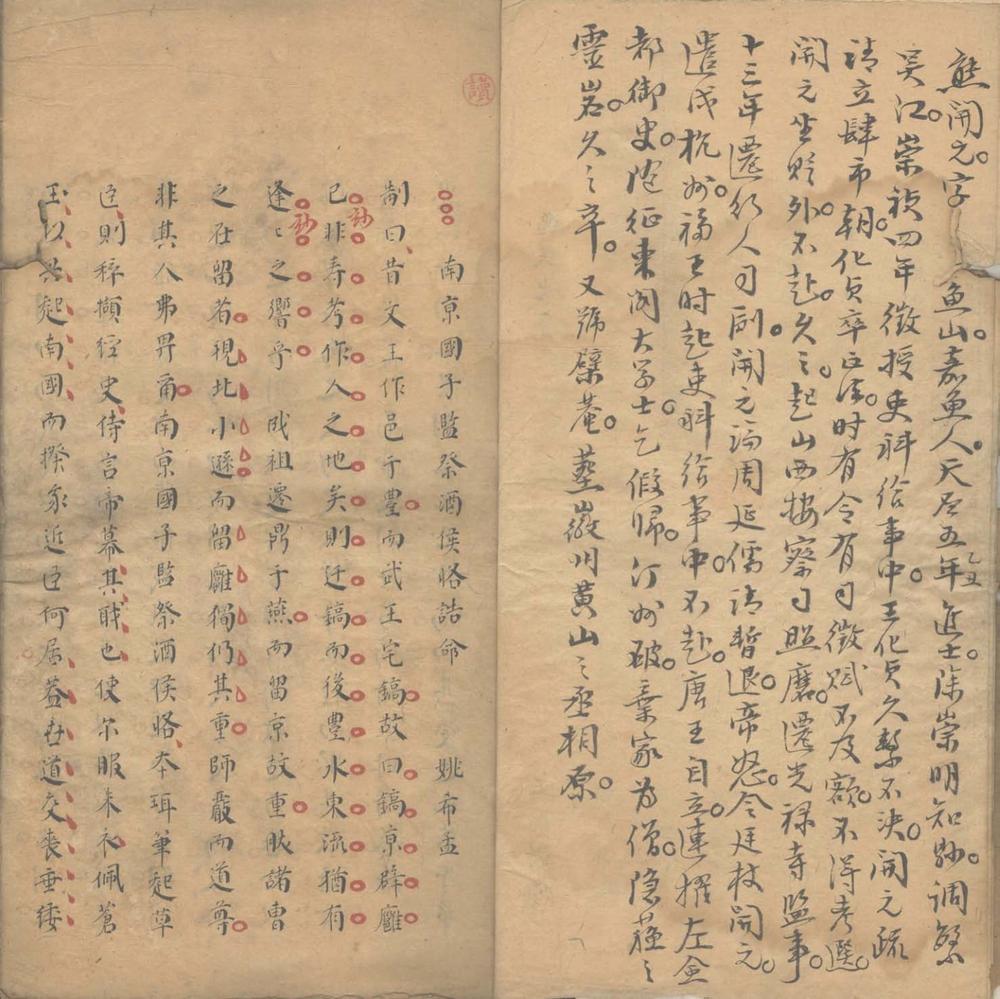 熊開元字魚山嘉魚人天启五年乙丑進士除崇明知縣調繁
吴江崇禎四年徵授吏科給事中王化貞久繫不決開元疏
請立肆市朝化貞卒正法時有令有司徵賦不及額不得考選
開元坐貶外不赴久之起山西按察司照磨遷光禄寺監事
十三年遷行人司副開元詣周延儒請暫退帝怒令廷杖開元
遣戍杭州福王時起吏科給事中不赴唐王自立連擢左僉
都御史隨征東閣大學士乞假歸汀州破棄家为僧隐蘓之
靈岩久之卒又號檗菴墓徽州黄山之丞相原
讀
南京國子監祭酒侯恪誥命 姚希孟
制曰昔文王作邑于豐而武王宅鎬故曰鎬京辟廱
已非寿考作人之地矣則迁鎬而後豐水東流猶有
妙
逢逢之響乎 成祖遷鼎于燕而留京故重朕諸曹
妙
之在留者視北小遜而留廱獨仍其重師嚴而道尊
非其人弗畀甭南京國子監祭酒侯恪夲珥筆起草
臣則稡擷經史侍言帝幕其職也使尔服朱衣佩蒼
玉以興起南國而揆家近臣何居蓋在道交喪垂緌